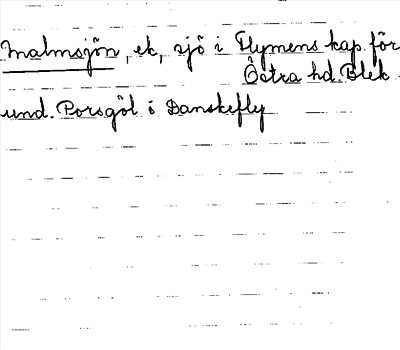 Malmsjön, ek, sjö i Flymens kap. för
Östra hd. Blek.
und. Porsgöl i Danskefly